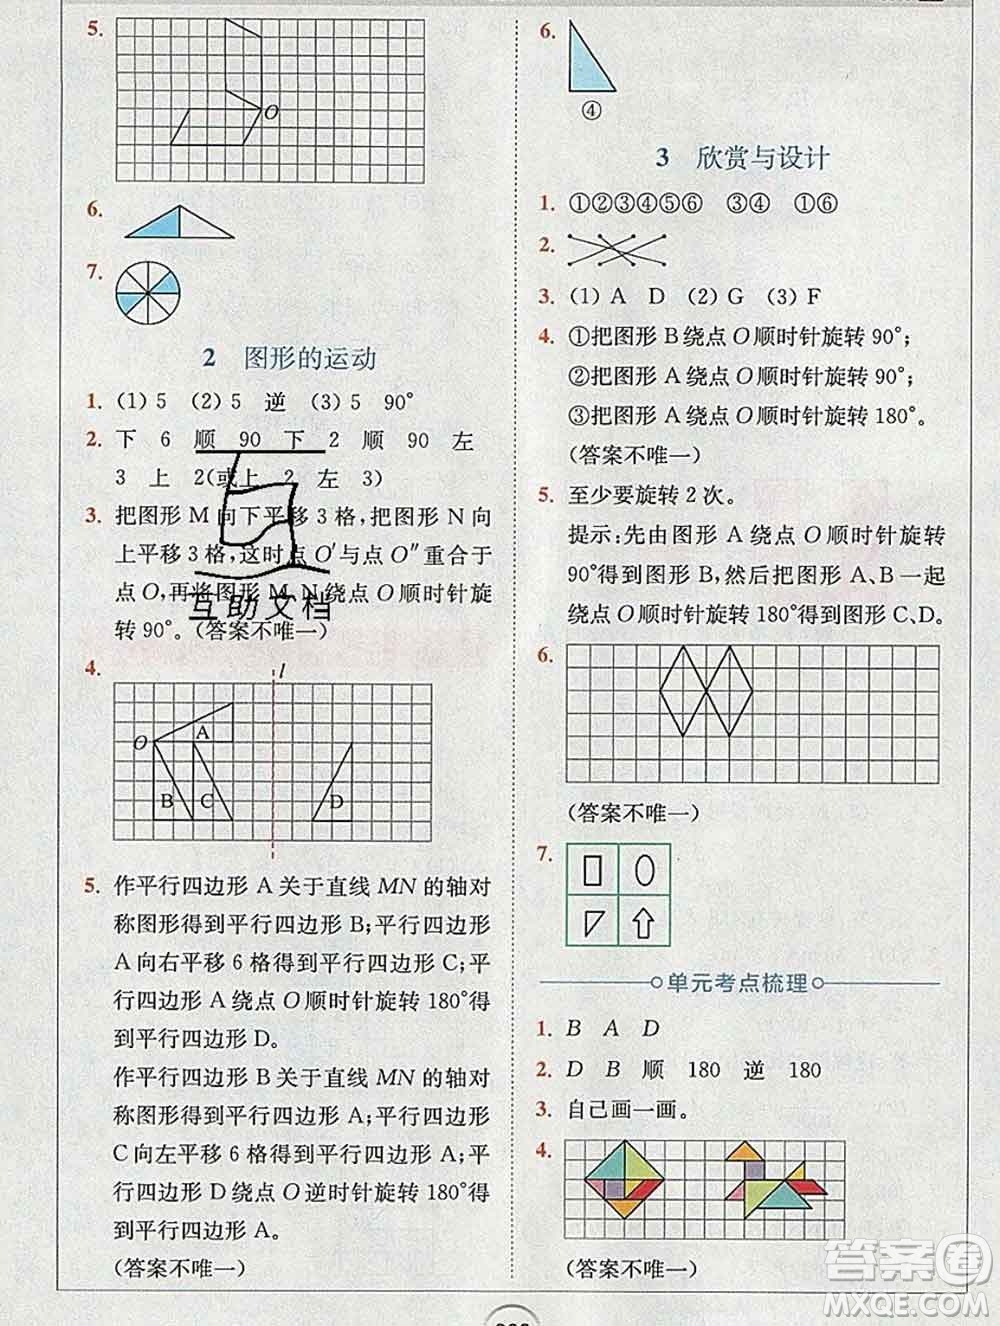 5.
O
6.
7.
2 图形的运动
1. (1) 5 (2) 5 逆 (3) 5 90°
2. 下 6 顺 90 下 2 顺 90 左
3 上 2(或上 2 左 3)
3. 把图形 M 向下平移 3 格,把图形 N 向
上平移 3 格,这时点 O′与点 O″重合于
点 O,再将图形 M、N 绕点 O 顺时针旋
转 90°。(答案不唯一)
互助文档
4.
l
O
A
B C D
5. 作平行四边形 A 关于直线 MN 的轴对
称图形得到平行四边形 B;平行四边形
A 向右平移 6 格得到平行四边形 C;平
行四边形 A 绕点 O 顺时针旋转 180°得
到平行四边形 D。
作平行四边形 B 关于直线 MN 的轴对
称图形得到平行四边形 A;平行四边形
C 向左平移 6 格得到平行四边形 A;平
行四边形 D 绕点 O 逆时针旋转 180°得
到平行四边形 A。
(答案不唯一)
6.
④
3 欣赏与设计
1. ①②③④⑤⑥ ③④ ①⑥
2.
3. (1) A D (2) G (3) F
4. ①把图形 B 绕点 O 顺时针旋转 90°;
②把图形 A 绕点 O 顺时针旋转 90°;
③把图形 A 绕点 O 顺时针旋转 180°。
(答案不唯一)
5. 至少要旋转 2 次。
提示:先由图形 A 绕点 O 顺时针旋转
90°得到图形 B,然后把图形 A、B 一起
绕点 O 顺时针旋转 180°得到图形 C、D。
6.
(答案不唯一)
7.
单元考点梳理
1. B A D
2. D B 顺 180 逆 180
3. 自己画一画。
4.
(答案不唯一)
答案圈
MXQE.COM